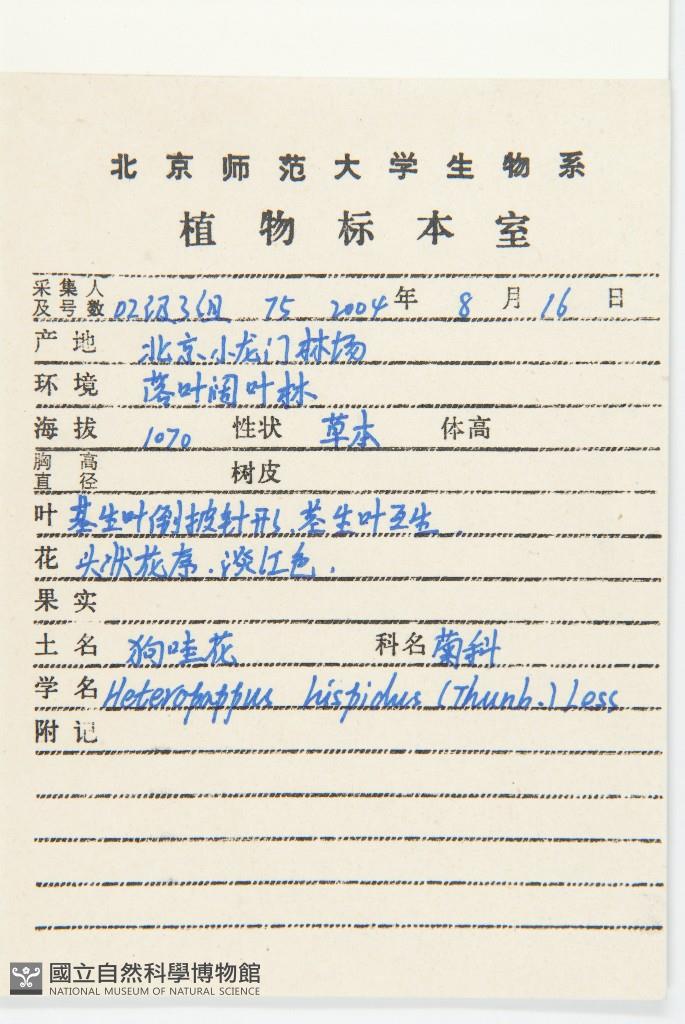 北京师范大学生物系
植物标本室
采集人及号数 02级3组 75 2004年 8月16日
产地 北京小龙门林场
环境 落叶阔叶林
海拔 1070 性状 草本 体高
胸高直径 树皮
叶 基生叶倒披针形、茎生叶互生.
花 头状花序.淡红色.
果实
土名 狗哇花 科名 菊科
学名 Heteropappus hispidus (Thunb.) Less
附记
國立自然科學博物館
NATIONAL MUSEUM OF NATURAL SCIENCE